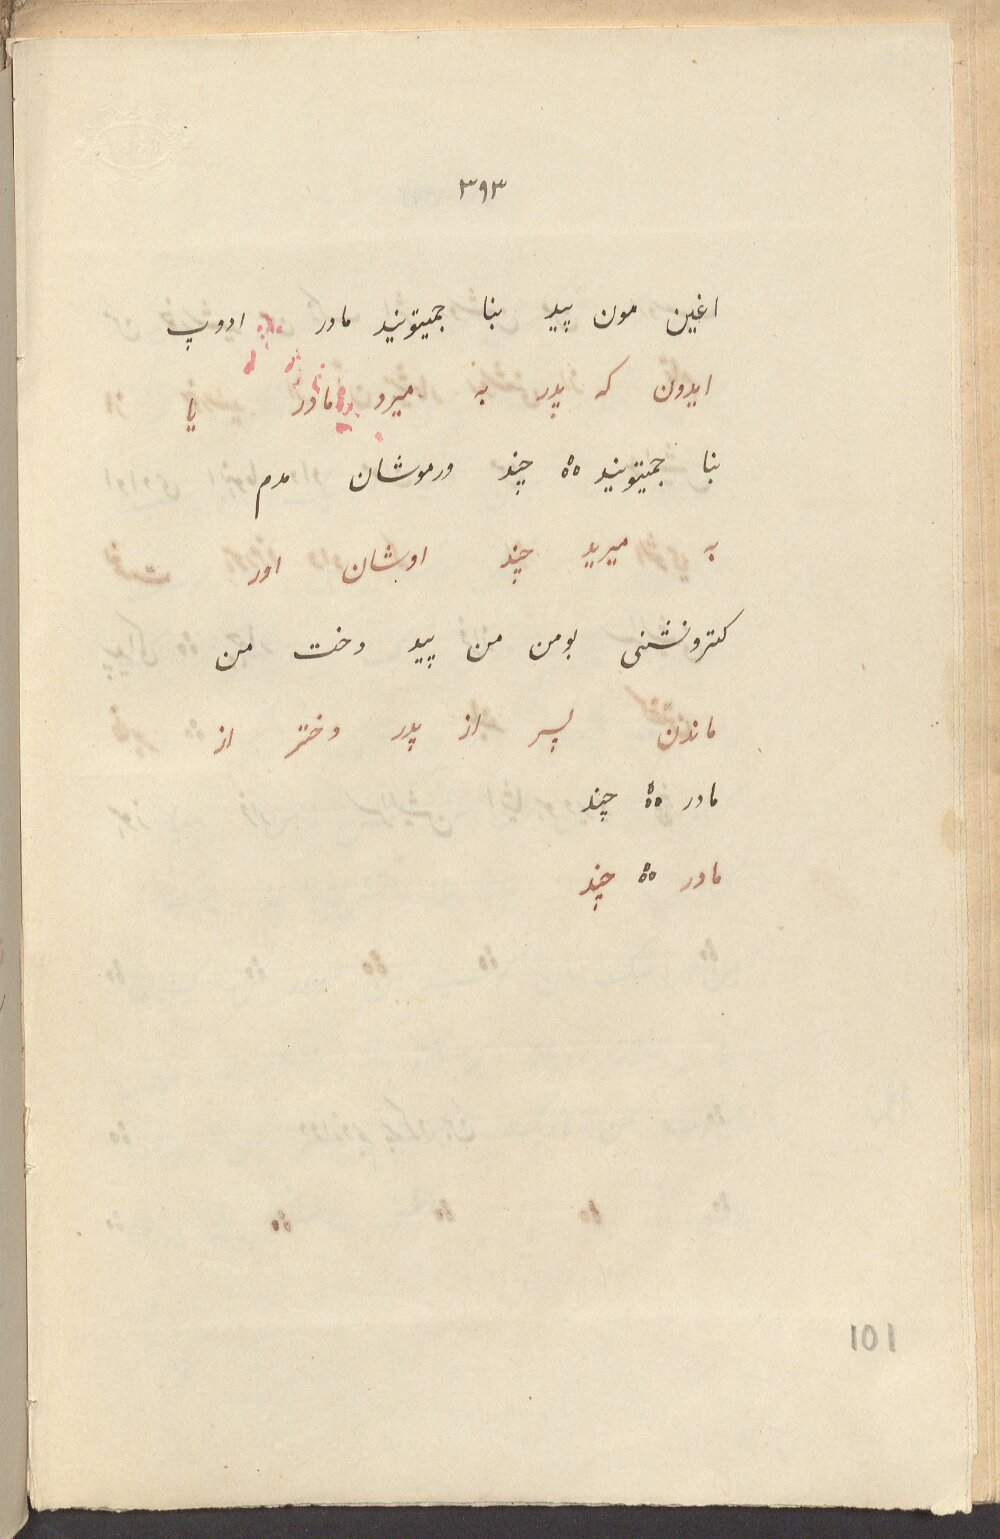 ۳۹۳
اغین مون پید بنا جمیتونید مادر ادوپ
ایدون که پدر به میرد مادر یا
بنا جمیتونید ؞ چند ورموشان مدم
به میرید چند اوشان اور
کترونشنی بومن من پید دخت من
ماندن پسر از پدر دختر از
مادر ؞ چند
مادر ؞ چند
101